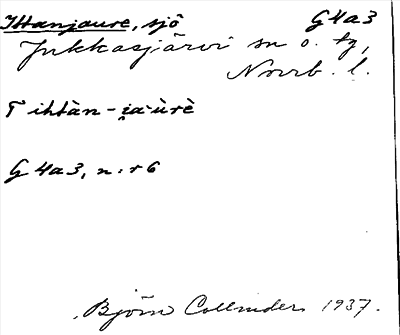 Ittanjaure, sjö G4a3
Jukkasjärvi sn o. tg,
Norrb. l.
T ihtàn-i̯a·ùrè
G 4a3, n:r 6
Björn Collinder 1937.